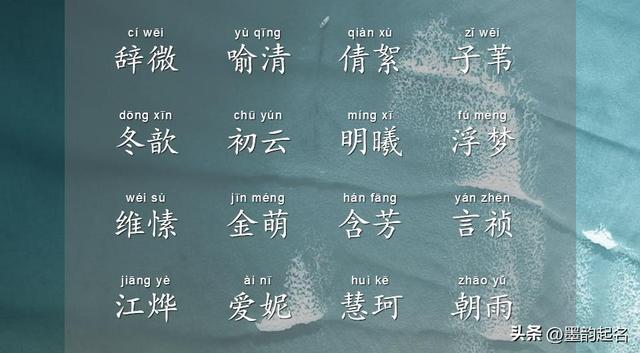 cí wēi yù qīng qiàn xù zǐ wěi
辞微 喻清 倩絮 子苇
dōng xīn chū yún míng xī fú mèng
冬歆 初云 明曦 浮梦
wéi sù jīn méng hán fāng yán zhēn
维愫 金萌 含芳 言祯
jiāng yè ài nī huì kē zhāo yǔ
江烨 爱妮 慧珂 朝雨
头条 @墨韵起名